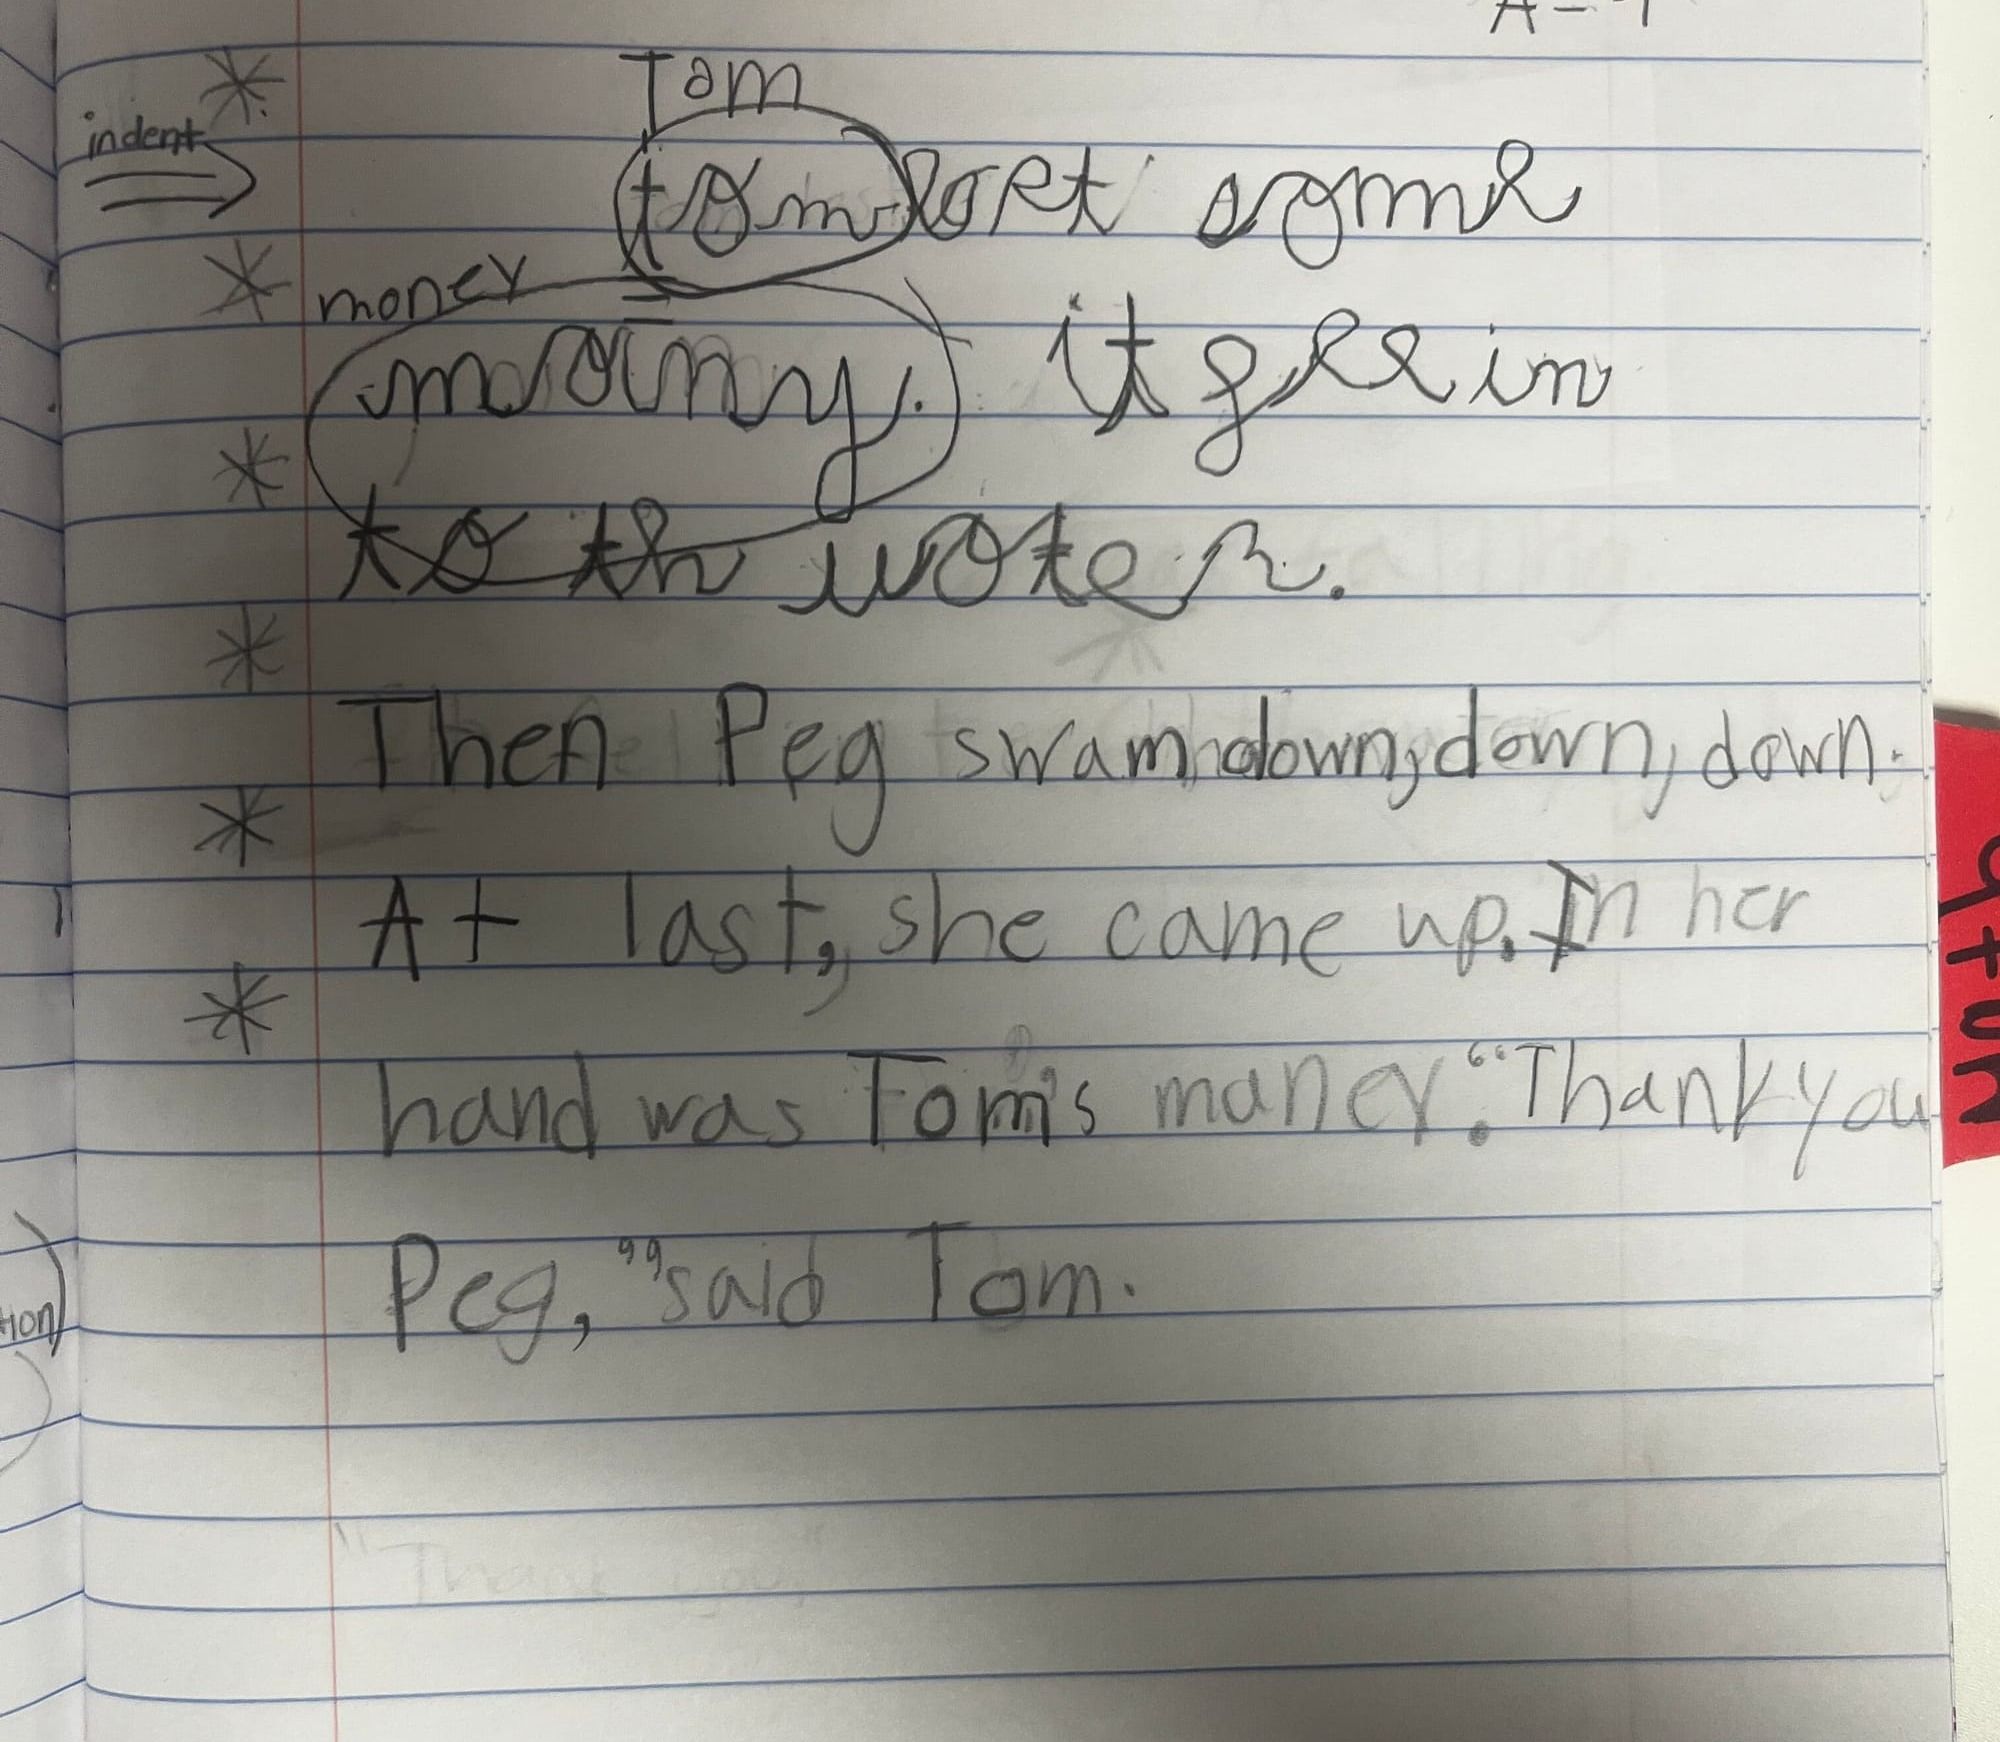 Tom
indent
tom lost some
money
mainy. it
to th woter.
Then Peg swam down, down, down.
At last, she came up. In her
hand was Tom's maney. "Thank you
Peg," said Tom.